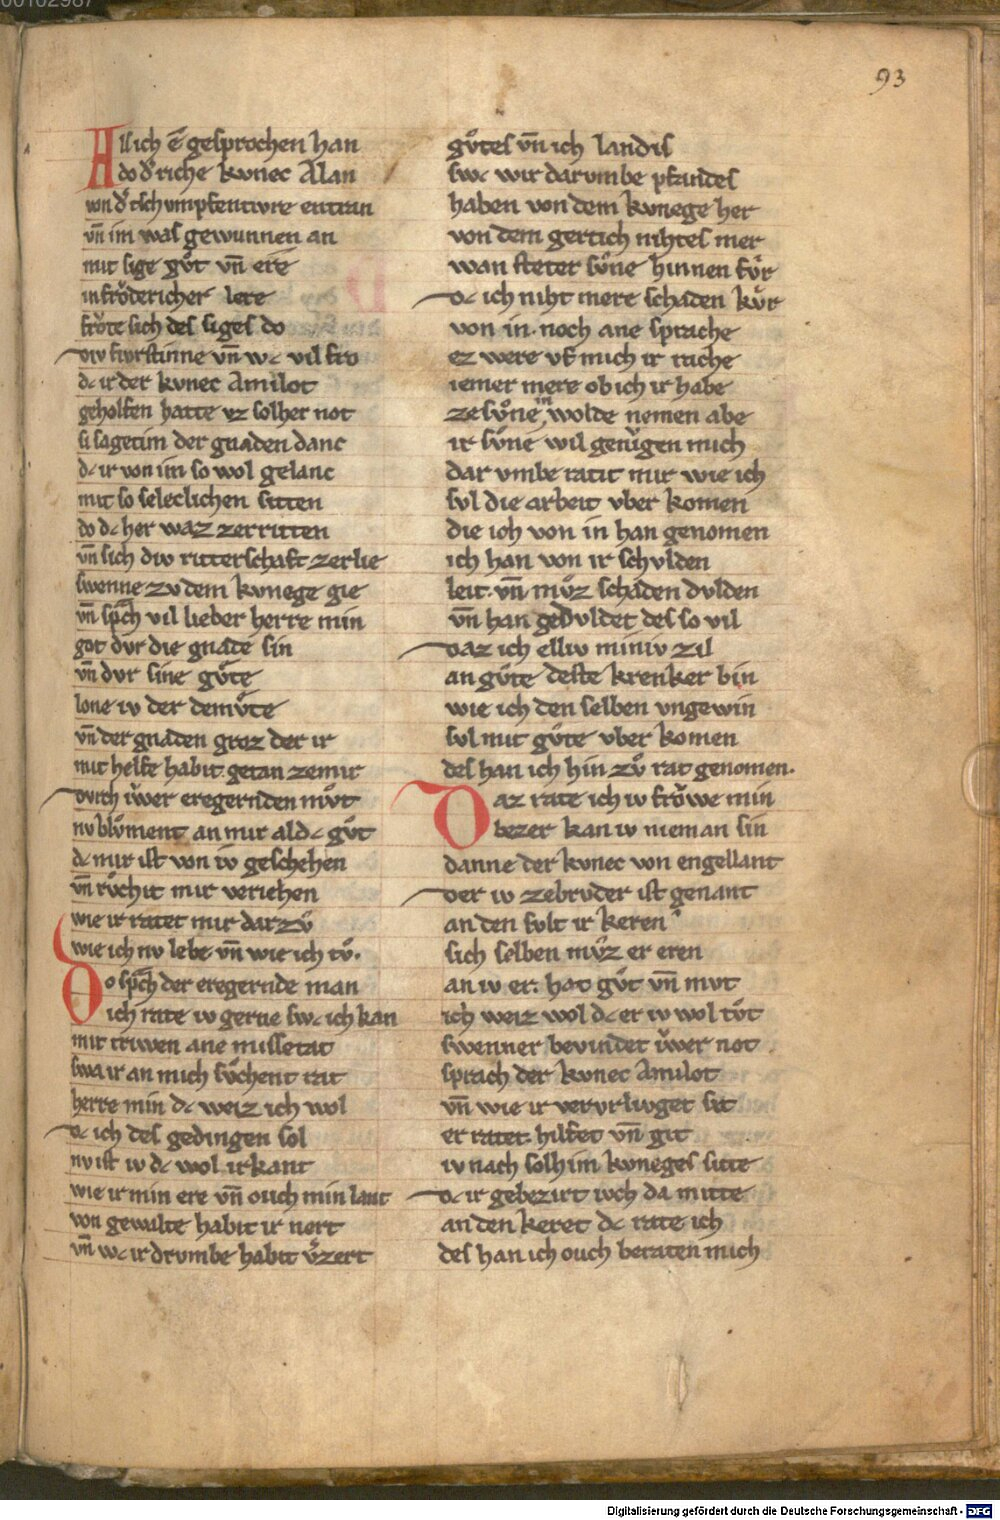 93
Als ich e gesprochen han
do dͤ riche kvnec Alan
von dͤ tschvmpfentivre entran
vn̄ im was gewunnen an
mit sige gůt vn̄ ere
in frǒdericher lere
frǒte sich des siges do
div fivrstinne vn̄ wc vil fro
dc ir der kvnec Amilot
geholfen hatte vz solher not
si sagetim der gnaden danc
dc ir von im so wol gelanc
mit so seleclichen sitten
do dc her waz zerritten
vn̄ sich div ritterschaft zerlie
swenne zv dem kvnege gie
vn̄ spͣch vil lieber herre min
got dvr die gnade sin
vn̄ dvr sine gv̊te
lone iv der demv̊te
vn̄ der gnaden groz der ir
mit helfe habit getan zemir
dvrch iv̂wer eregernden mv̊t
nv blv̊ment an mir al dc gv̊t
dc mir ist von iv geschehen
vn̄ rv̊chit mir veriehen
wie ir ratet mir dar zv̊
wie ich nv lebe vn̄ wie ich tv̊.
Do spͣch der eregernde man
ich rate iv gerne swc ich kan
mit triwen ane missetat
swa ir an mich sv̊chent rat
herre min dc weiz ich wol
dc ich des gedingen sol
nv ist iv dc wol irkant
wie ir min ere vn̄ ouch min lant
von gewalte habit ir nert
vn̄ wc ir drvmbe habit v̂zert
gv̊tes vn̄ ich landis
swc wir darvmbe pfandes
haben von dem kvnege her
von dem gertich nihtes mer
wan steter sv̊ne hinnen fv̂r
dc ich niht mere schaden kv̂r
von in. noch ane sprache
ez were vf mich ir rache
iemer mere ob ich ir habe
ze sv̊ne in wolde nemen abe
ir sv̊ne wil genv̊gen mich
dar vmbe ratit mir wie ich
svl die arbeit vber komen
die ich von in han genomen
ich han von ir schvlden
leit. vn̄ mv̊z schaden dvlden
vn̄ han gedvldet des so vil
daz ich elliv miniv zil
an gv̊te deste krenker bin
wie ich den selben vngewin
svl mit gv̊te vber komen
des han ich hin zv̊ rat genomen.
Daz rate ich iv frǒwe min
bezer kan iv nieman sin
danne der kvnec von engellant
der iv zebrvder ist genant
an den svlt ir keren
sich selben mv̊z er eren
an iv er. hat gv̊t vn̄ mvt
ich weiz wol dc er iv wol tv̊t
swenner bevindet iv̂wer not
sprach der kvnec Amilot
vn̄ wie ir vervrlivget sit
er ratet. hilfet vn̄ git
iv nach solhim kvneges sitte
dc ir gebezirt ivch da mitte
an den keret dc rate ich
des han ich ouch beraten mich
Digitalisierung gefördert durch die Deutsche Forschungsgemeinschaft - DFG